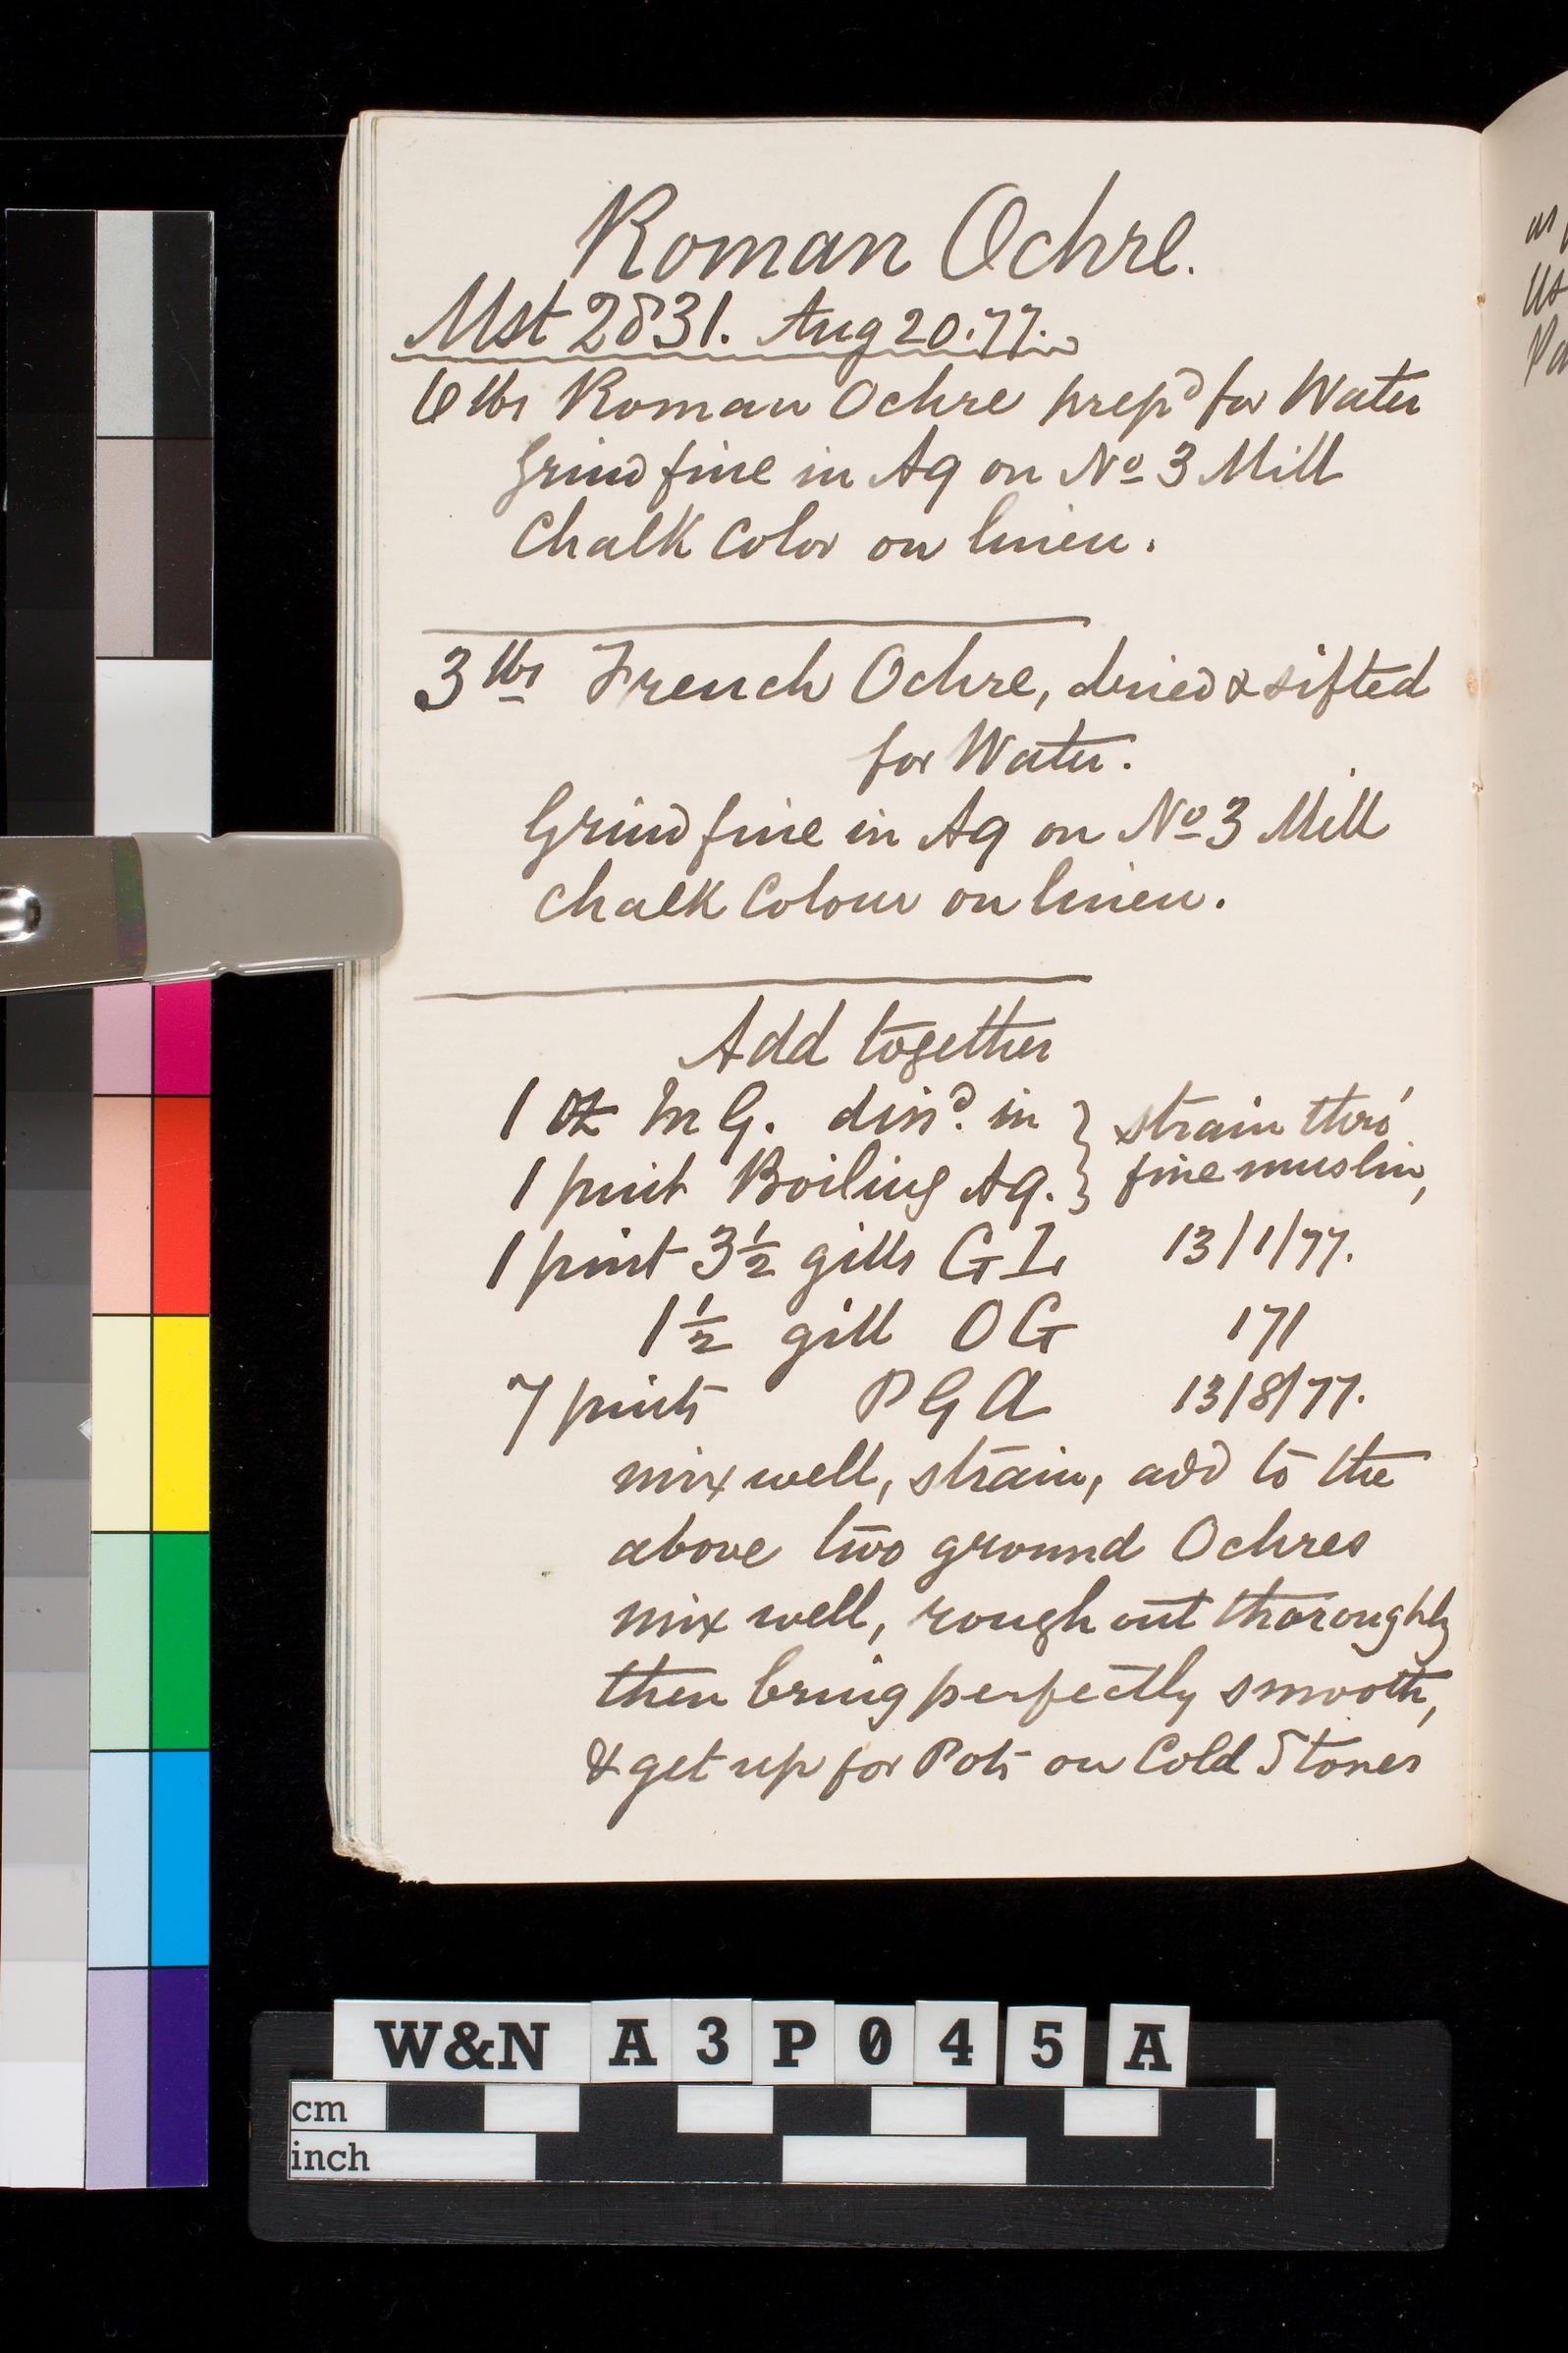 Roman Ochre.
Mst 2831. Aug 20.77.
6 lbs Roman Ochre prepd for Water
Grind fine in Aq on No 3 Mill
Chalk Color on linen.
3 lbs French Ochre, dried & sifted
for Water.
Grind fine in Aq on No 3 Mill
Chalk Colour on linen.
Add together
1 oz M G. dissd. in } strain thro'
1 pint Boiling Aq. } fine muslin,
1 pint 3½ gills G I. 13/1/77.
1½ gill O G 171
7 pints P G A 13/8/77.
mix well, strain, add to the
above two ground Ochres
mix well, rough out thoroughly
then bring perfectly smooth,
& get up for Pots on Cold Stones
as
Us
Pa
W&N A3P045A
cm
inch